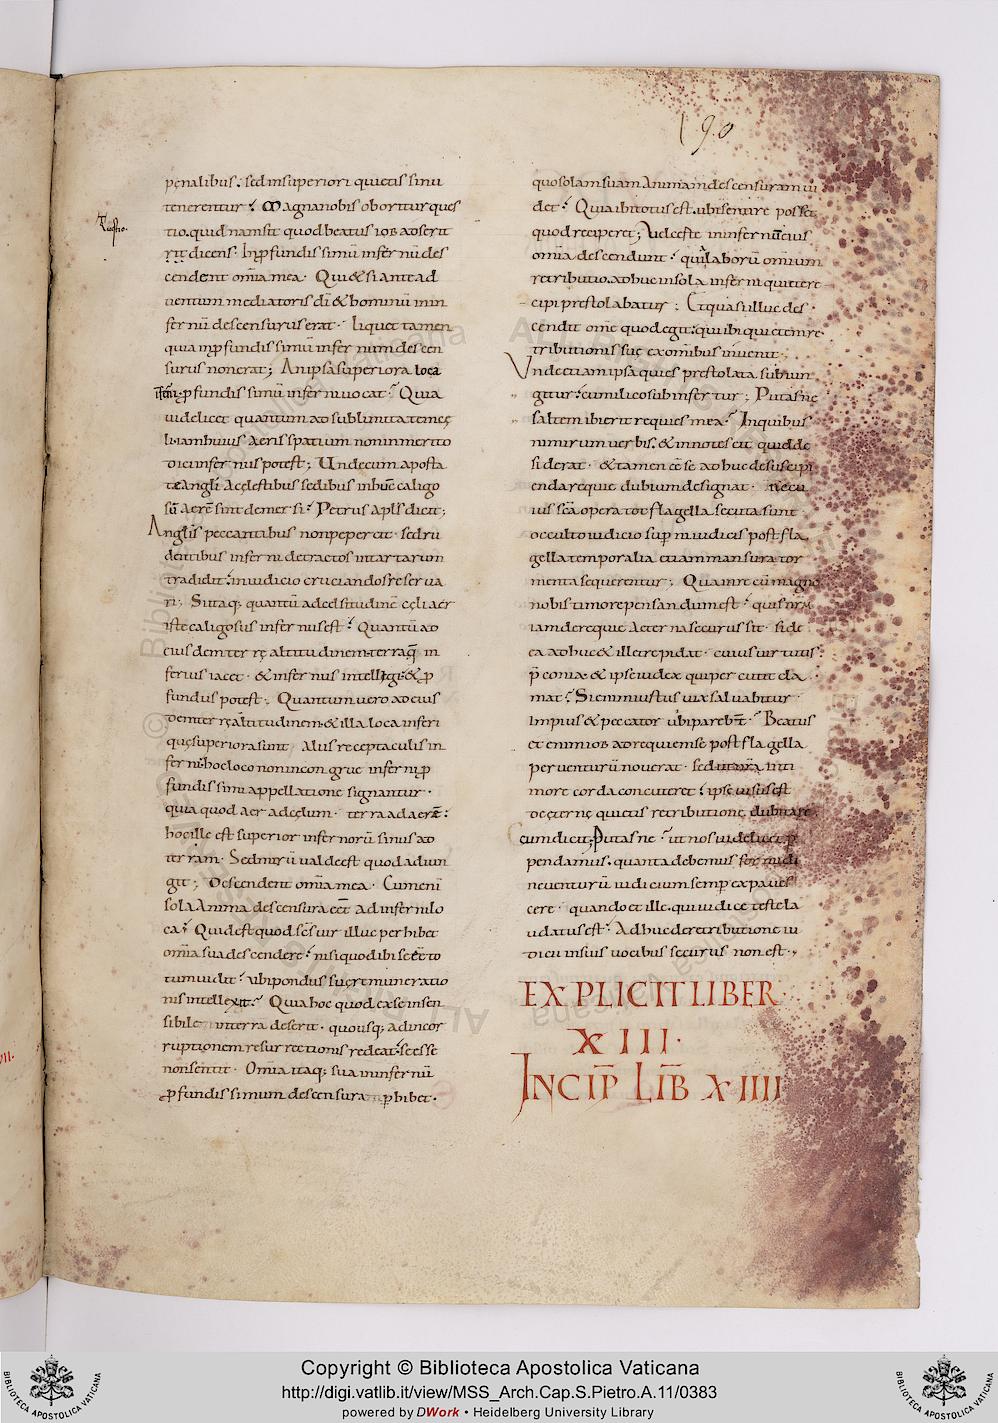 190
penalibus. sed in superiori quietis sinu
tenerentur? Magna nobis oboritur ques
Questio.
tio. quid nam sit quod beatus iob adserit
dicens. In ꝓfundissimū infernū des
cendent om̄ia mea. Qui & si ante ad
uentum mediatoris dī & hominū in in
fernū descensurus erat. liquet tamen
quia in ꝓfundissimū infernum descen
surus non erat; An ipsa superiora loca
inferni ꝓfundissimū infernū uocat? Quia
uidelicet quantum ad sublimitatem cę
li iam huius aeris spatium non inmerito
dici infernus potest; Unde cum aposta
tae angli a cęlestibus sedibus in hunc caligo
sū aerē sint demersi? Petrus apls dicit;
Anglis peccantibus non pepercit. sed ru
dentibus inferni detractos in tartarum
tradidit. in iudicio cruciandos reserua
ri; Si itaq; quantū ad celsitudinē cęli aer
iste caligosus infernus est? Quantū ad
eius dem terrę altitudinem terra quę in
ferius iacet. & infernus intellegi & ꝓ
fundus potest. Quantum uero ad eius
dem terrę altitudinem. & illa loca inferi
quę superiora sunt aliis receptaculis in
ferni. hoc loco non incongrue inferni ꝓ
fundissimi appellatione signantur.
quia quod aer ad cęlum. terra ad aerē.
hoc ille est superior infernorū sinus ad
terram. Sed mirū ualde est quod adiun
git; Descendent om̄ia mea. Cum eni
sola anima descensura eēt ad inferni lo
ca? Quid est quod ses uir illuc perhibet
om̄ia sua descendere? nisi quod ibi se eē to
tum uidit? ubi pondus suę remuneratio
nis intellexit? Quia hoc quod ex se insen
sibile in terra deserit. quousq; ad incor
ruptionem resurrectionis redeat. se esse
non sentit. Om̄ia itaq; sua in infernū
ꝓfundissimum descensura perhibet.
quo solam suam animam descensuram ui
det? Quia ibi totus est. ubi sentire posset
quod reciperet; Uel certe in infernū eius
om̄ia descendunt? quia laborū om̄ium
retributio. adhuc in sola inferni quiete re
cipi prestolabatur; Et quasi illuc des
cendit om̄e quod egit. qui ibi quietem re
tributionis suę ex om̄ibus inuenit;
Unde etiam ipsa quies prestolata subiun
gitur. cum ilico subinfertur; Putasne
saltem ibi erit requies mea? In quibus
nimirum uerbis. & innotescit quid de
siderat. & tamen eē se adhuc de suscipi
enda requie dubium designat. ne cu
ius scā opera tot flagella secuta sunt.
occulto iudicio supni iudicis post fla
gella temporalia etiam mansura tor
menta sequerentur; Qua in re cū magno
nobis timore pensandum est? quis nrm
iam de requie aeterna securus sit. si de
ea adhuc & ille trepidat. cuius uirtutis
pconia & ipse iudex qui percutit cla
mat? Si enim iustus uix saluabitur
impius & peccator ubi parebit? Beatus
et enim iob ad requiem se post flagella
peruenturū nouerat. sed ut nrā in ti
more corda concuteret? ipse uisus est
de ęternę quietis retributione dubitare.
cum dicit; Putasne? ut nos uidelicet per
pendamus. quanta debemus formidi
ne uenturū iudicium semp expaues
cere. quando et ille. qui iudice teste la
udatus est. Adhuc de retributione iu
dicii in suis uocibus securus non est.
EXPLICIT LIBER
XIII.
INCIP̄ LIB̄ XIIII
Copyright © Biblioteca Apostolica Vaticana
http://digi.vatlib.it/view/MSS_Arch.Cap.S.Pietro.A.11/0383
powered by DWork • Heidelberg University Library
BIBLIOTECA APOSTOLICA VATICANA
BIBLIOTECA APOSTOLICA VATICANA